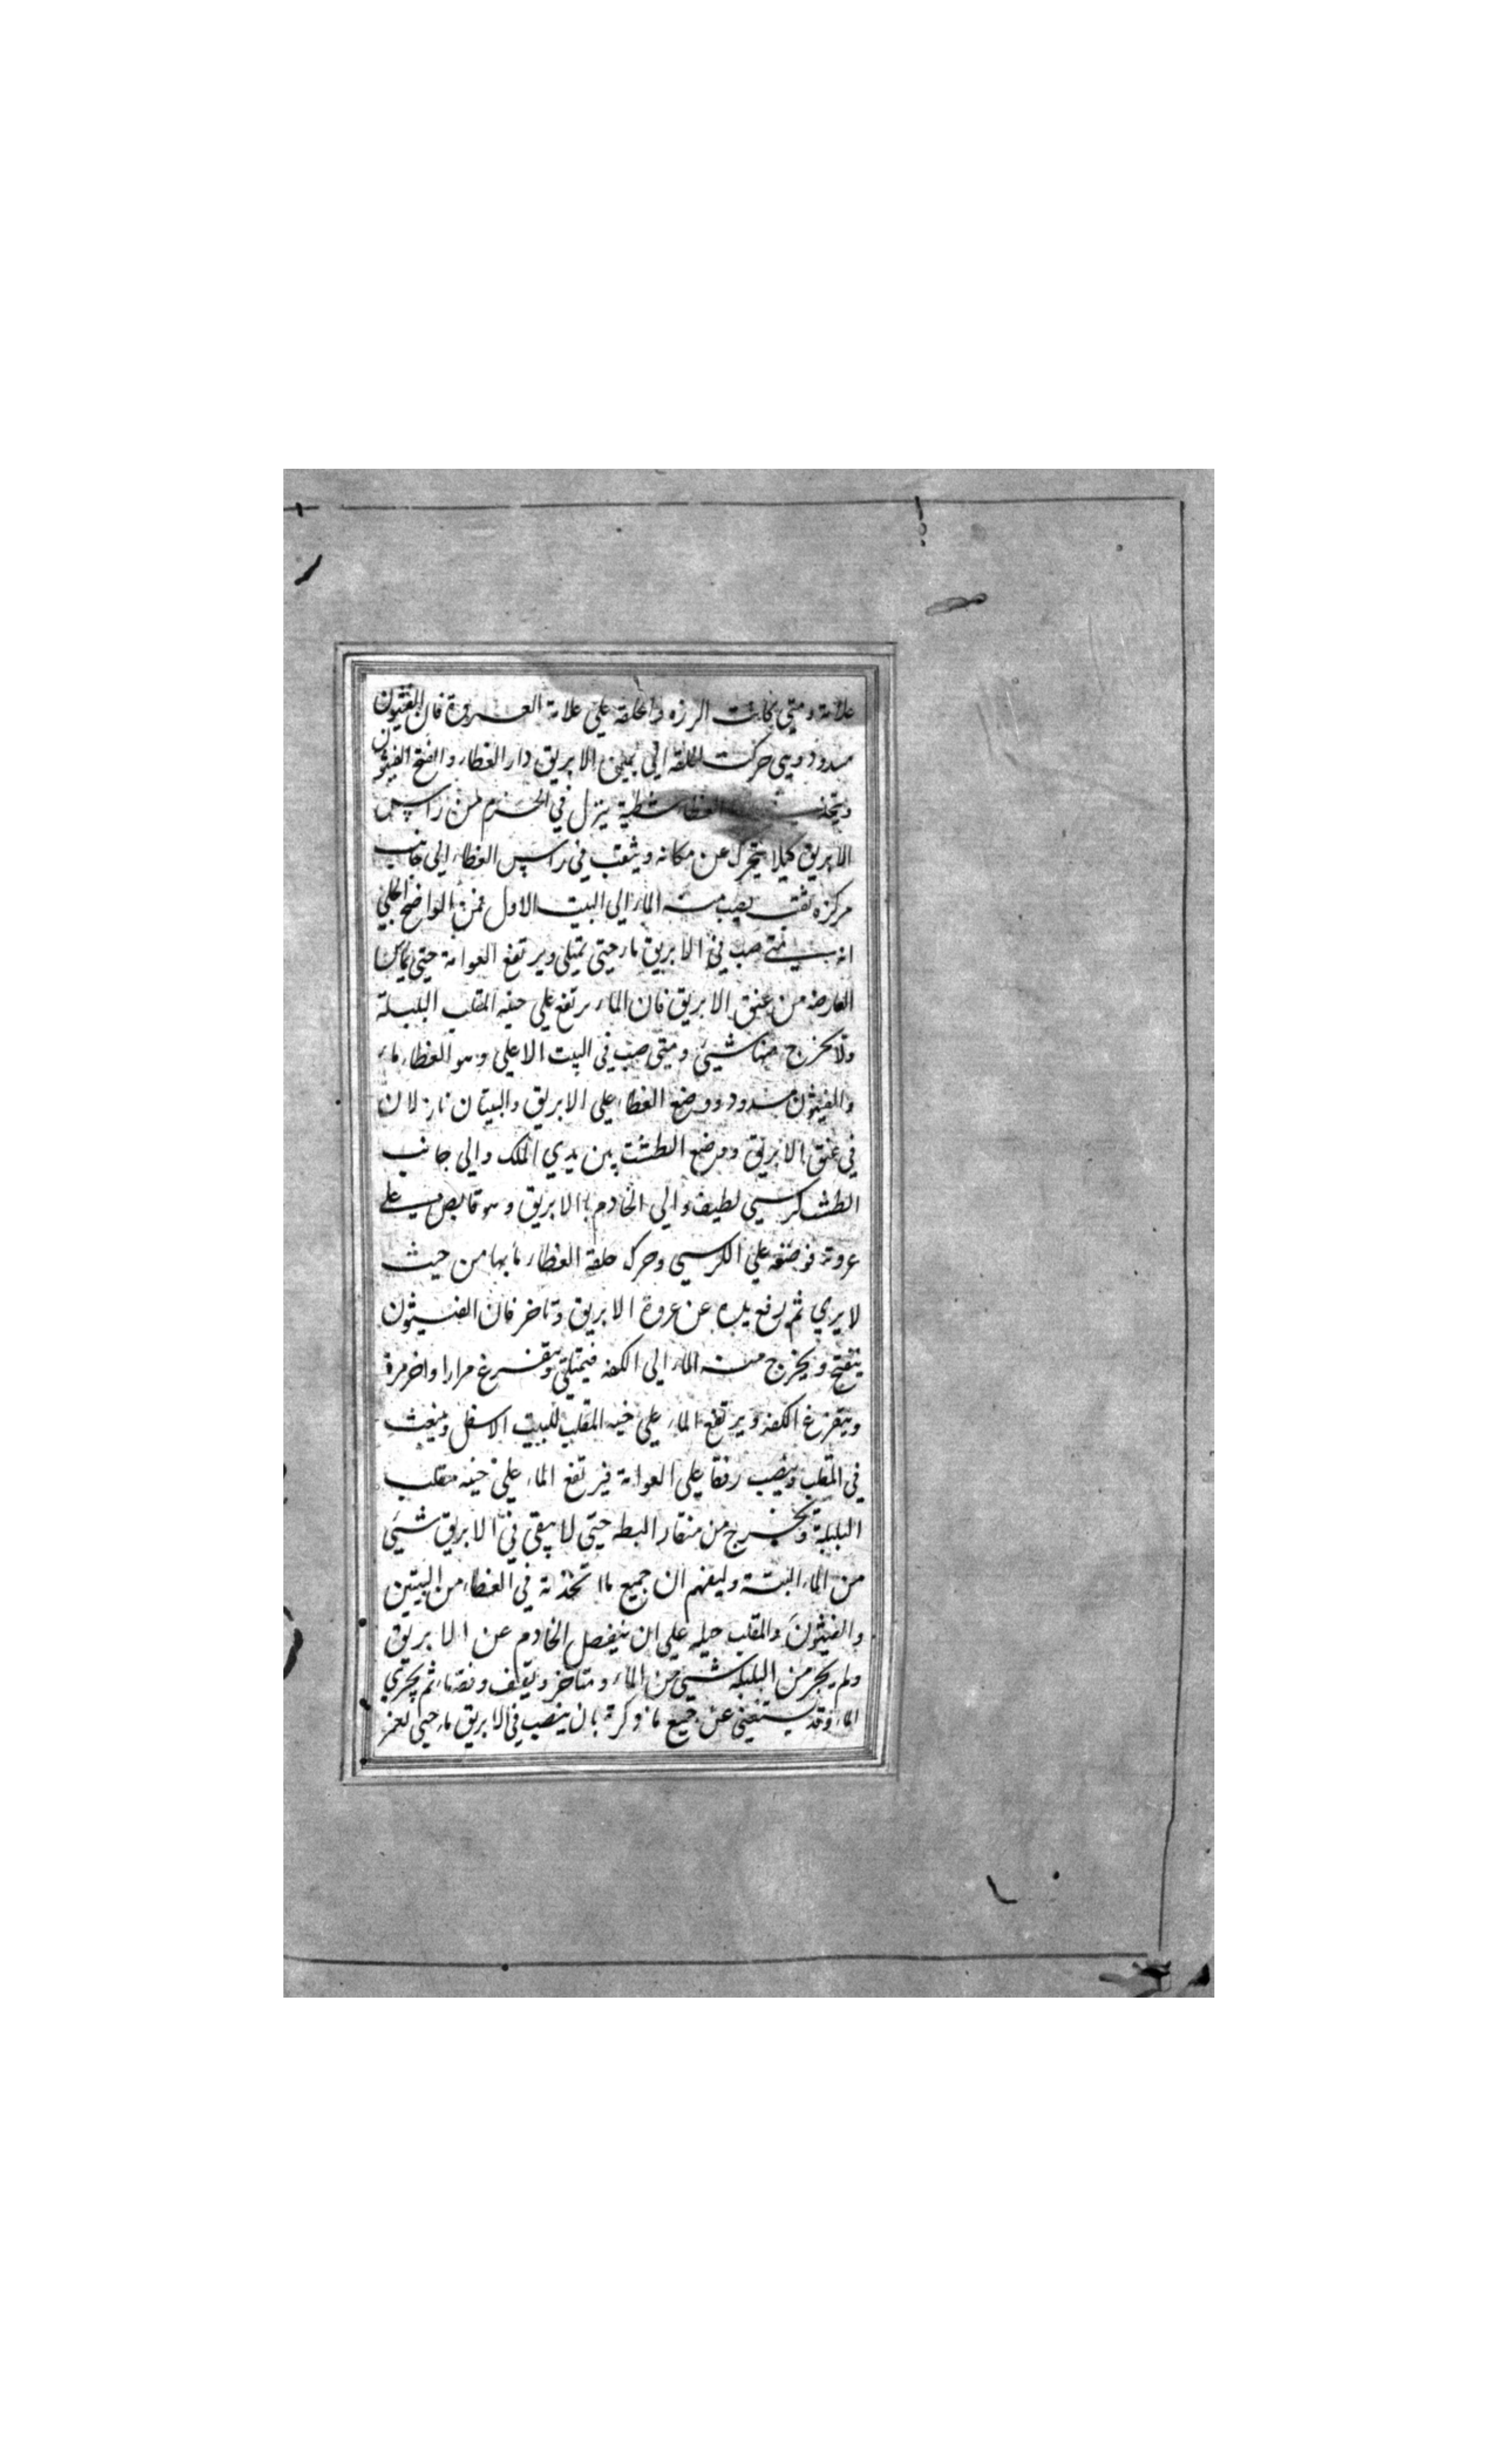 علامة ومتي كانت الرزه والحلقه علي علامة العـروة فان الفثيون
مسدود ومتي حركت الحلقه الي يمين الابريق دار الغطاء وانفتح الفيثون
ويتخذ الغطا شظية ينزل في الخزم من راس
الابريق كيلا يتحرك عن مكانه ويثقب في راس الغطاء الي جانب
مركزه ثقب يصب منه الماء الي البيت الاول فمن الواضح الجلي
انه متي صب في الابريق ماء حتي يمتلي ويرتفع العوامة حتي يماس
العارضه من عنق الابريق فان الماء يرتفع علي حنيه المقلب البلبلة
ولا يخرج منها شيئ ومتي صب في البيت الاعلي وهو الغطاء ماء
والفيثون مسدود ووضع الغطاء علي الابريق والبيتان نازلان
في عنق الابريق ووضع الطشت بين يدي الملك والي جانب
الطشت كرسي لطيف والي الخادم بالابريق وهو قابض علي
عروته فوضعه علي الكرسي وحرك حلقة الغطاء بابهامه من حيث
لا يري ثم رفع يده عن عروة الابريق وتاخر فان الفيثون
ينفتح ويخرج منه الماء الي الكفه فيمتلي ويتفرغ مرارا واخر مرة
ويتفرغ الكفه ويرتفع الماء علي حنيه المقلب للبيت الاسفل وينبعث
في المقلب وينصب رفقا علي العوامة فيرتفع الماء علي حنيه مقلب
البلبلة ويخرج من منقار البطه حتي لا يبقي في الابريق شيئ
من الماء البتة وليفهم ان جميع ما اتخذته في الغطاء من البيتين
والفيثون والمقلب حيله علي ان ينفصل الخادم عن الابريق
ولم يجر من البلبله شيئ من الماء ومتاخر ويقف ونصتا ثم يجري
الماء وقد يستغني عن جميع ما ذكرته بان ينصب في الابريق ماء حتي